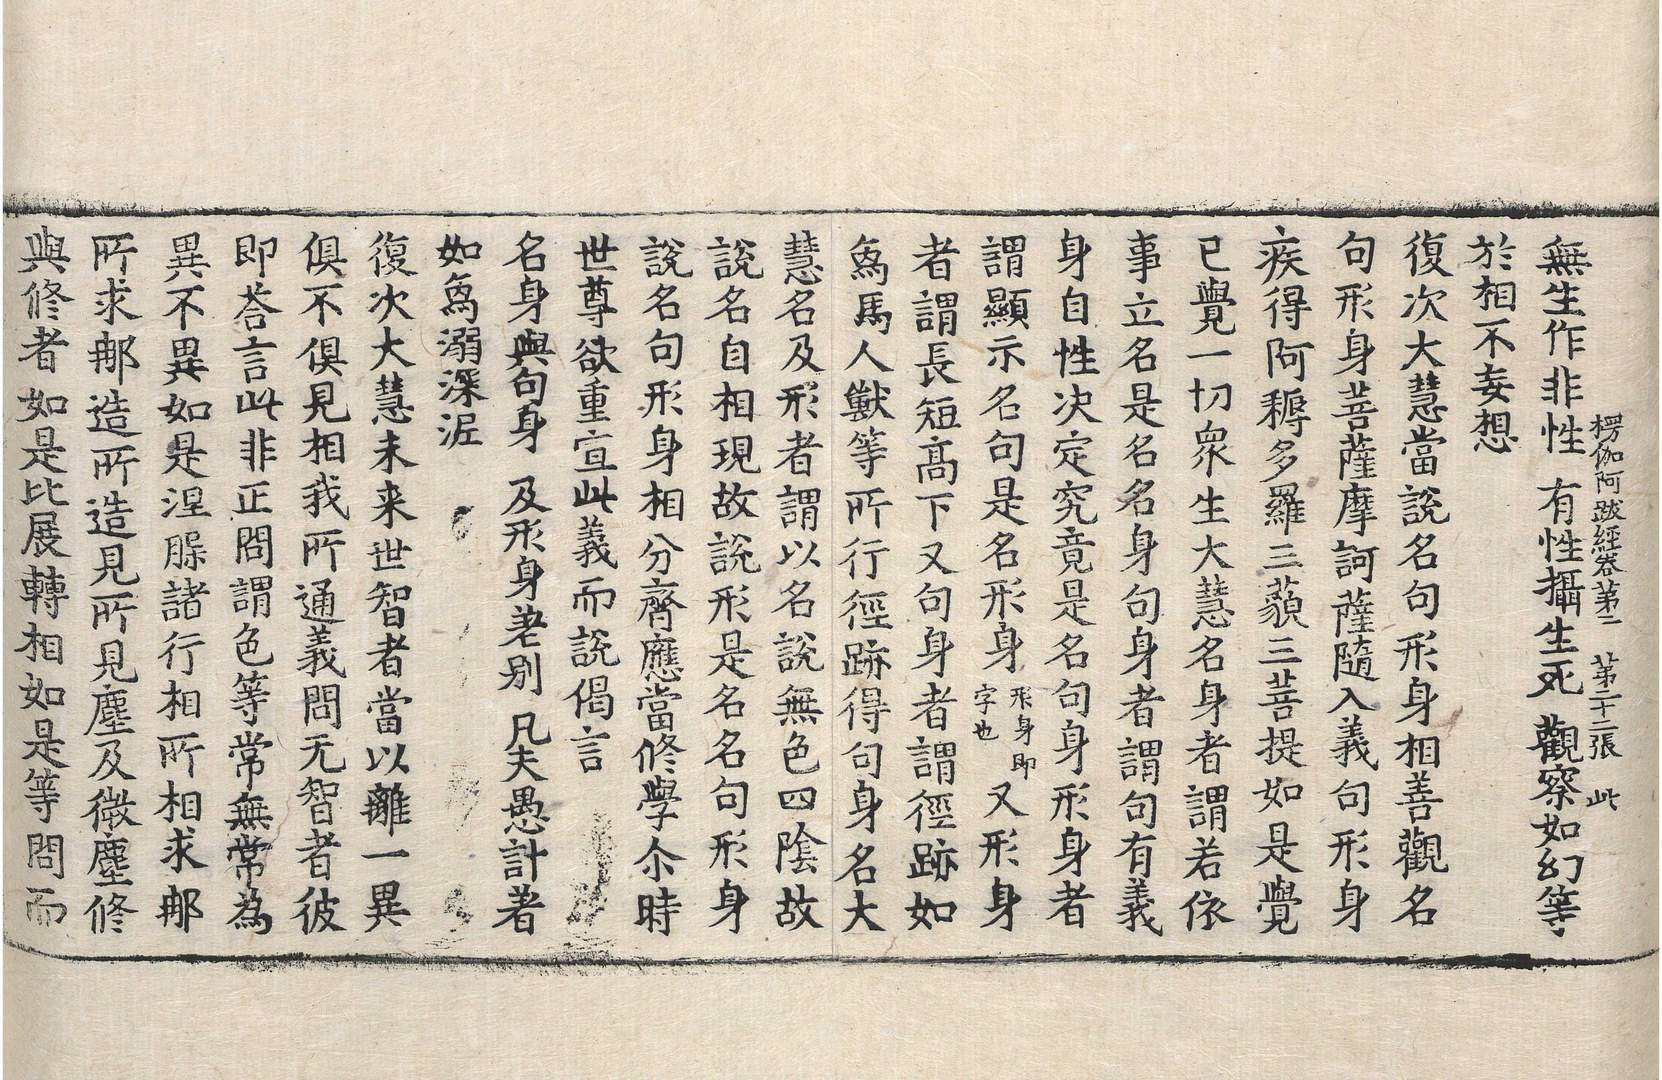 楞伽阿跋經卷第二 第二十二張 此
無生作非性 有性攝生死 觀察如幻等
於相不妄想
復次大慧當說名句形身相善觀名
句形身菩薩摩訶薩隨入義句形身
疾得阿耨多羅三藐三菩提如是覺
已覺一切衆生大慧名身者謂若依
事立名是名名身句身者謂句有義
身自性决定究竟是名句身形身者
謂顯示名句是名形身形身即字也又形身
者謂長短高下又句身者謂徑跡如
象馬人獸等所行徑跡得句身名大
慧名及形者謂以名說無色四陰故
說名自相現故說形是名名句形身
說名句形身相分齊應當修學尒時
世尊欲重宣此義而說偈言
名身與句身 及形身差別 凡夫愚計著
如象溺深泥
復次大慧未来世智者當以離一異
俱不俱見相我所通義問无智者彼
即荅言此非正問謂色等常無常為
異不異如是涅槃諸行相所相求那
所求那造所造見所見塵及微塵修
與修者如是比展轉相如是等問而